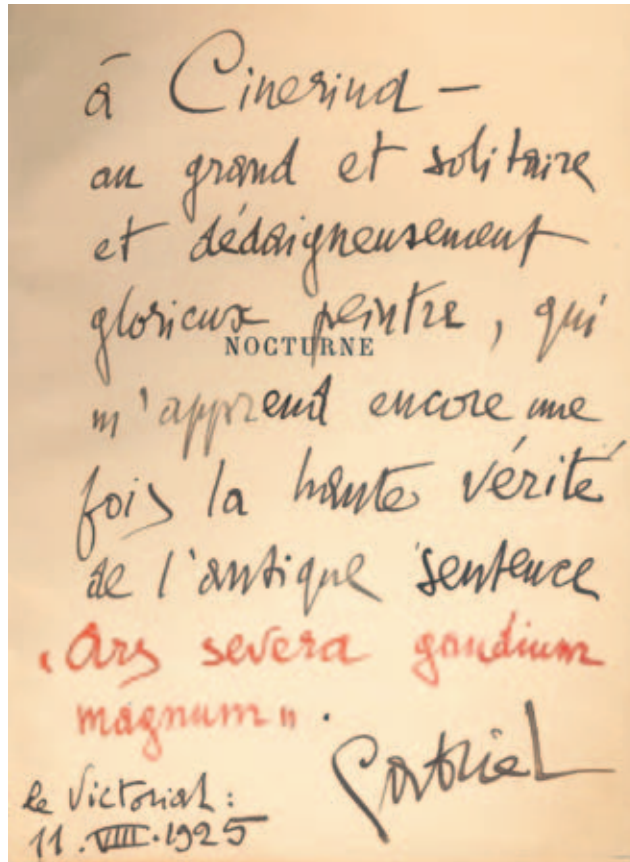 à Cinerina —
au grand et solitaire
et dédaigneusement
glorieux peintre, qui
NOCTURNE
m'apprend encore une
fois la haute vérité
de l'antique sentence
"Ars severa gaudium
magnum".
Gabriel
le Victorial:
11.VIII.1925